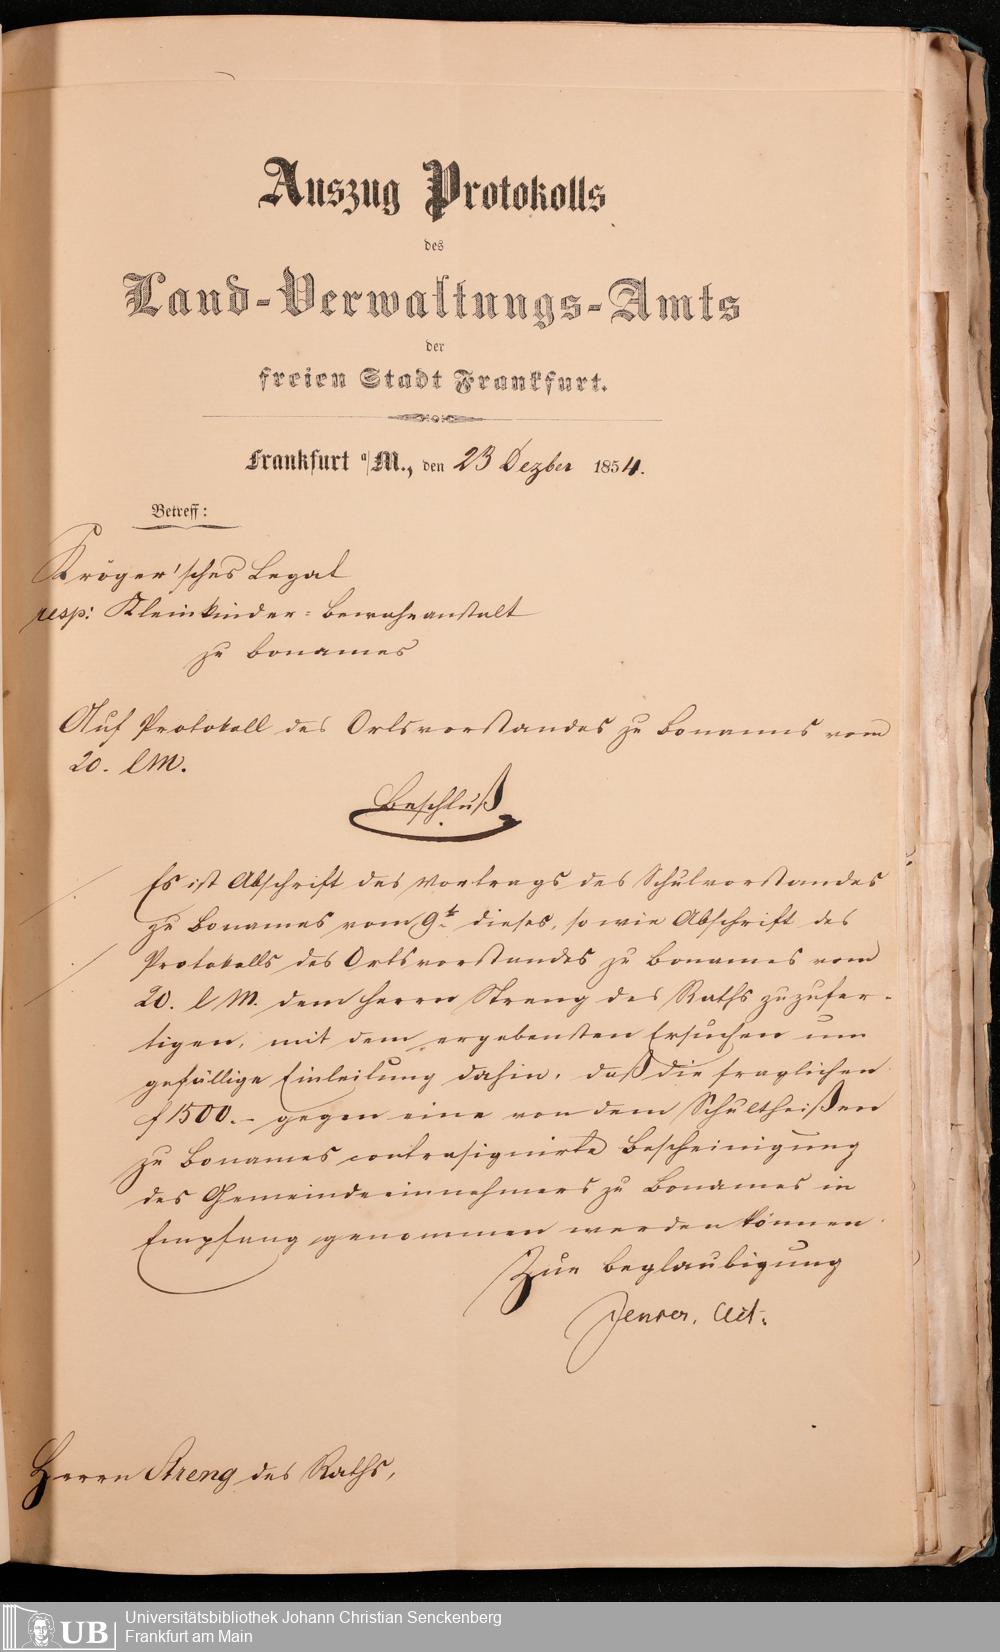 Auszug Protokolls
des
Land-Verwaltungs-Amts
der
freien Stadt Frankfurt.
Frankfurt a/M., den 23 Dezber 1854.
Betreff:
Kröger'sches Legat
resp: Kleinkinder-Bewahranstalt
zu Bonames
Auf Protokoll des Ortsvorstandes zu Bonames vom
20. l M.
Beschluß
Es ist Abschrift des Vortrags des Schulvorstandes
zu Bonames vom 9t. dieses, so wie Abschrift des
Protokolls des Ortsvorstandes zu Bonames vom
20. l M. dem Herrn Streng des Raths zuzufer-
tigen, mit dem ergebensten Ersuchen um
gefällige Einleitung dahin, daß die fraglichen
f 1500.- gegen eine von dem Schultheißen
zu Bonames contrasignirte Bescheinigung
des Gemeindeeinnehmers zu Bonames in
Empfang genommen werden können.
Zur Beglaubigung
Act.
Herrn Streng des Raths,
UB
Universitätsbibliothek Johann Christian Senckenberg
Frankfurt am Main